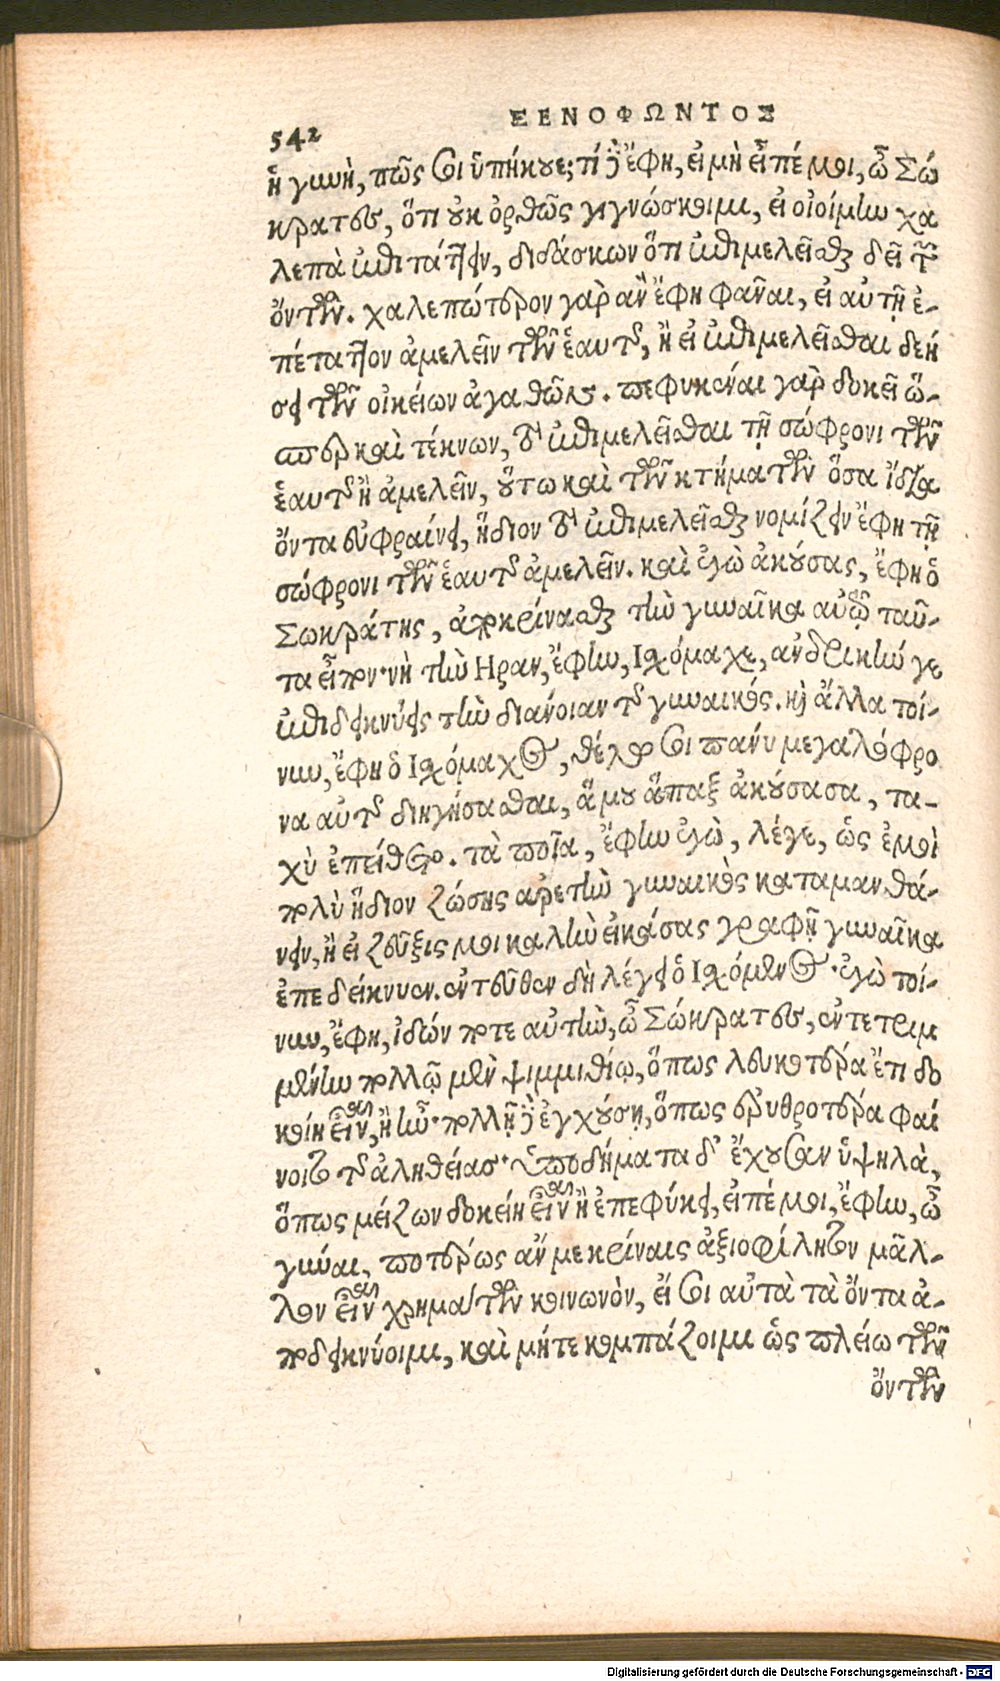 542
ΞΕΝΟΦΩΝΤΟΣ
ἡ γυνὴ, πῶς σοι ὑπήκουε; τί δὲ ἔφη, εἰ μὴ εἶπέ μοι, ὦ Σώ
κρατες, ὅτι οὐκ ὀρθῶς γιγνώσκοιμι, εἰ οἰοίμην χα
λεπὰ ἐπιτάττειν, διδάσκων ὅτι ἐπιμελεῖσθαι δεῖ τῶν
ὄντων. χαλεπώτερον γὰρ ἂν ἔφη φᾶναι, εἰ αὐτῇ ἐ-
πέταττον ἀμελεῖν τῶν ἑαυτῆς, ἢ εἰ ἐπιμελεῖσθαι δεή
σει τῶν οἰκείων ἀγαθῶν. πεφυκέναι γὰρ δοκεῖ ὥ-
σπερ καὶ τέκνων, τὸ ἐπιμελεῖσθαι τῇ σώφρονι τῶν
ἑαυτῆς ἢ ἀμελεῖν, οὕτω καὶ τῶν κτημάτων ὅσα ἴδια
ὄντα εὐφραίνει, ἥδιον τὸ ἐπιμελεῖσθαι νομίζειν ἔφη τῇ
σώφρονι τῶν ἑαυτῆς ἀμελεῖν. καὶ ἐγὼ ἀκούσας, ἔφη ὁ
Σωκράτης, ἀποκρίνασθαι τὴν γυναῖκα αὐτῷ ταῦ-
τα εἶπον· νὴ τὴν Ηραν, ἔφην, Ισχόμαχε, ἀνδρικήν γε
ἐπιδεικνύεις τὴν διάνοιαν τῆς γυναικός. καὶ ἄλλα τοί-
νυν, ἔφη ὁ Ισχόμαχος, θέλω σοι πάνυ μεγαλόφρο
να αὐτῆς διηγήσασθαι, ἅ μου ἅπαξ ἀκούσασα, τα-
χὺ ἐπείθετο. τὰ ποῖα, ἔφην ἐγὼ, λέγε, ὡς ἐμοὶ
πολὺ ἥδιον ζώσης ἀρετὴν γυναικὸς καταμανθά-
νειν, ἢ εἰ Ζεῦξις μοι καλὴν εἰκάσας γραφῇ γυναῖκα
ἐπεδείκνυεν. ἐντεῦθεν δὴ λέγει ὁ Ισχόμαχος· ἐγὼ τοί-
νυν, ἔφη, ἰδών ποτε αὐτὴν, ὦ Σώκρατες, ἐντετριμ
μένην πολλῷ μὲν ψιμμιθίῳ, ὅπως λευκοτέρα ἔτι δο
κοίη εἶναι, ἢ ἦν· πολλῇ δὲ ἐγχούσῃ, ὅπως ἐρυθροτέρα φαί
νοιτο τῆς ἀληθείας· ὑποδήματα δ' ἔχουσαν ὑψηλὰ,
ὅπως μείζων δοκείη εἶναι ἢ ἐπεφύκει, εἰπέ μοι, ἔφην, ὦ
γύναι, ποτέρως ἄν με κρίναις ἀξιοφίλητον μᾶλ-
λον εἶναι χρημάτων κοινωνὸν, εἴ σοι αὐτὰ τὰ ὄντα ἀ-
ποδεικνύοιμι, καὶ μήτε κομπάζοιμι ὡς πλείω τῶν
ὄντων
Digitalisierung gefördert durch die Deutsche Forschungsgemeinschaft - DFG